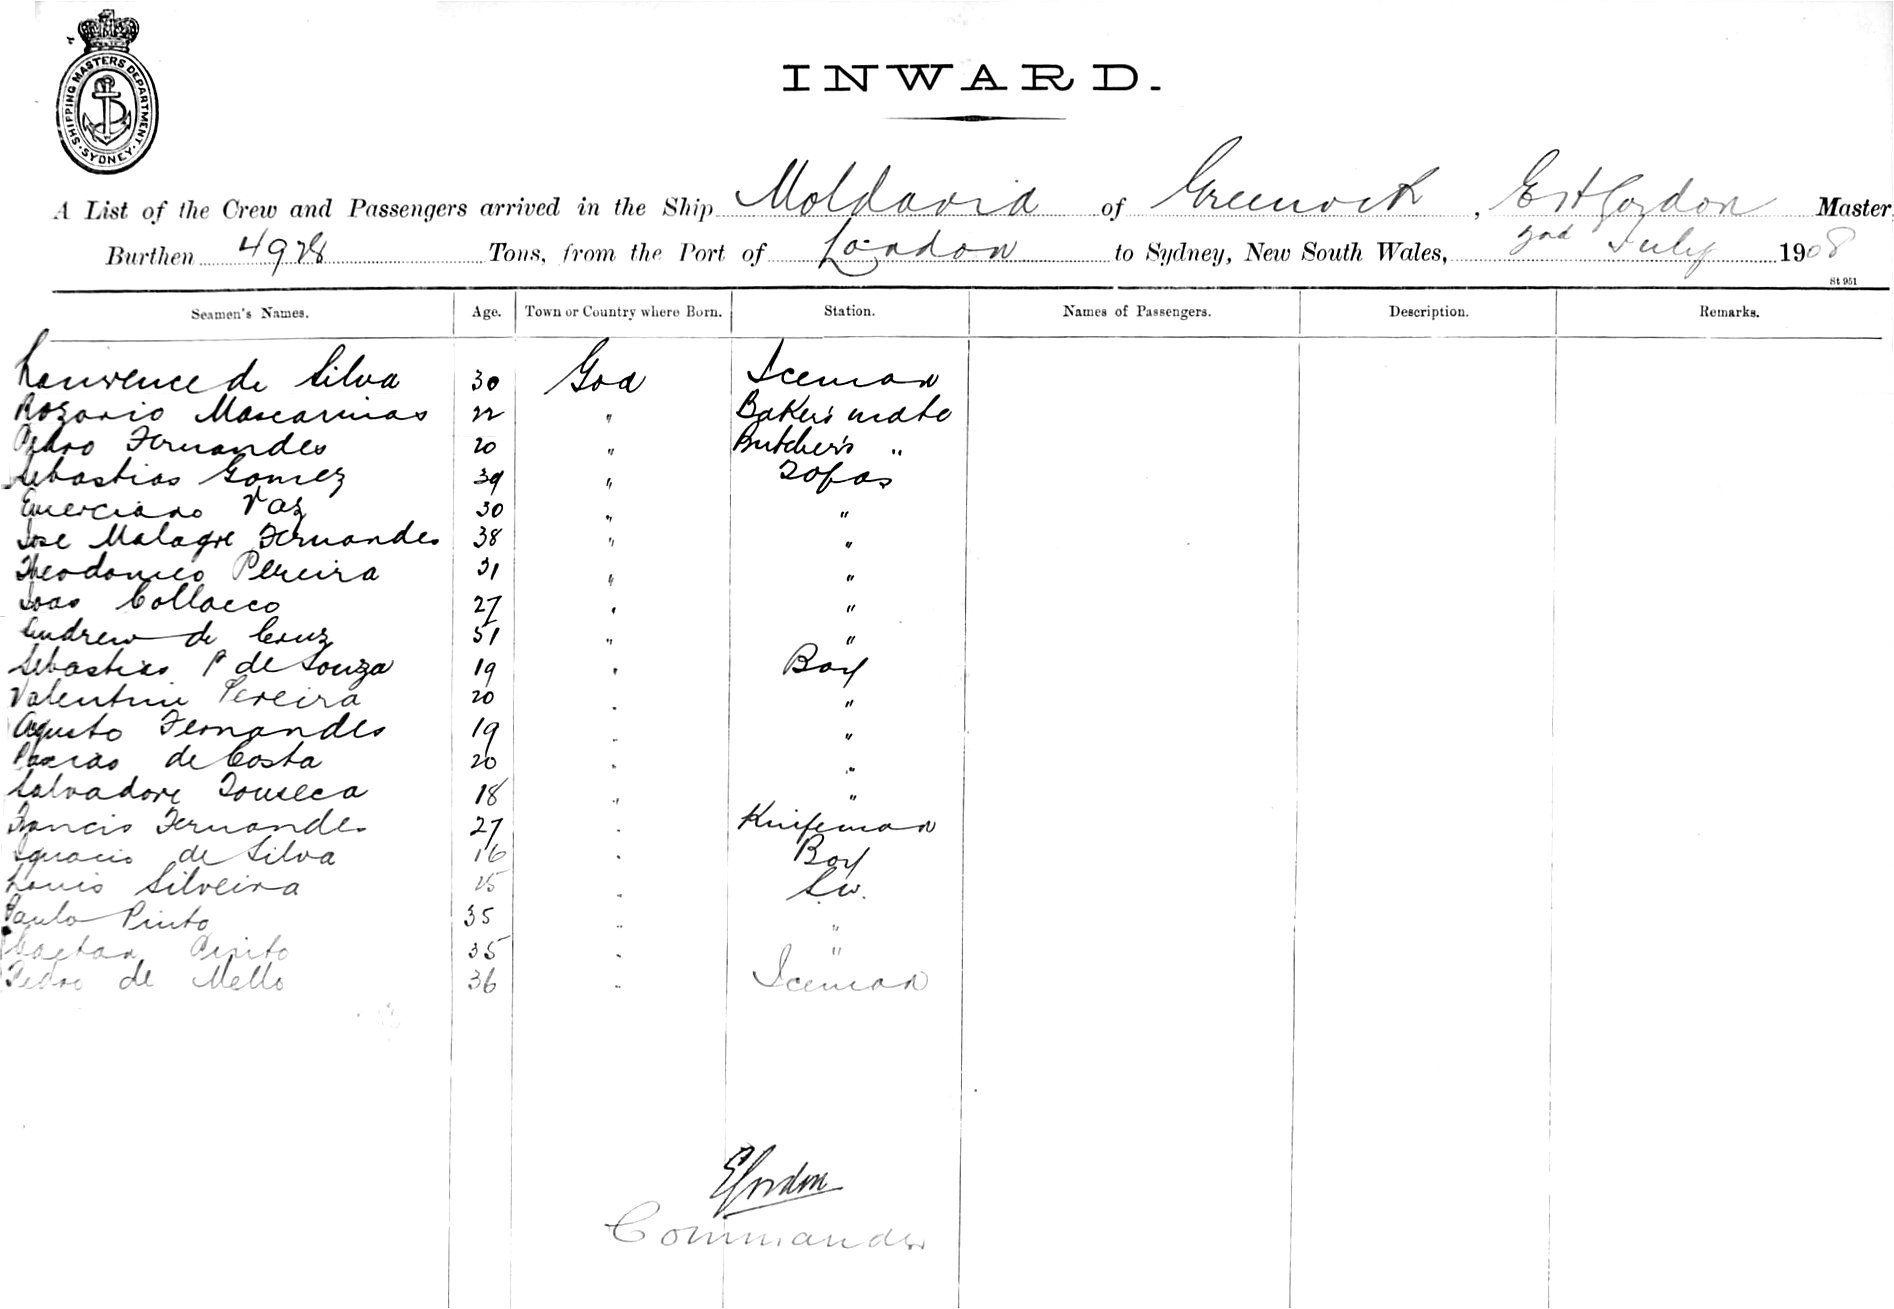 SHIPPING MASTERS DEPARTMENT. SYDNEY.
INWARD.
A List of the Crew and Passengers arrived in the Ship Moldavia of Greenock, E H Gordon Master,
Burthen 4928 Tons, from the Port of London to Sydney, New South Wales, 2nd July 1908
St 951
Seamen's Names. Age. Town or Country where Born. Station. Names of Passengers. Description. Remarks.
Lawrence de Silva 30 Goa Iceman
Rozario Mascarinas 22 " Baker's mate
Pedro Fernandes 20 " Butcher's "
Sebastiao Gomez 39 " Topas
Emerciano Vaz 30 " "
Jose Malagre Fernandes 38 " "
Theodonico Pereira 31 " "
Joao Collaeco 27 " "
Andrew de Cruz 31 " "
Sebastiao P de Souza 19 " Boy
Valentine Pereira 20 " "
Agusto Fernandes 19 " "
de Costa 20 " "
Salvadore Fonseca 18 " "
Francis Fernandes 27 " Knifeman
Ignacio de Silva 16 " Boy
Louis Silveira 25 " Sw.
Paulo Pinto 35 " "
Caetan Pinto 35 " "
Pedro de Mello 36 " Iceman
E Gordon
Commander